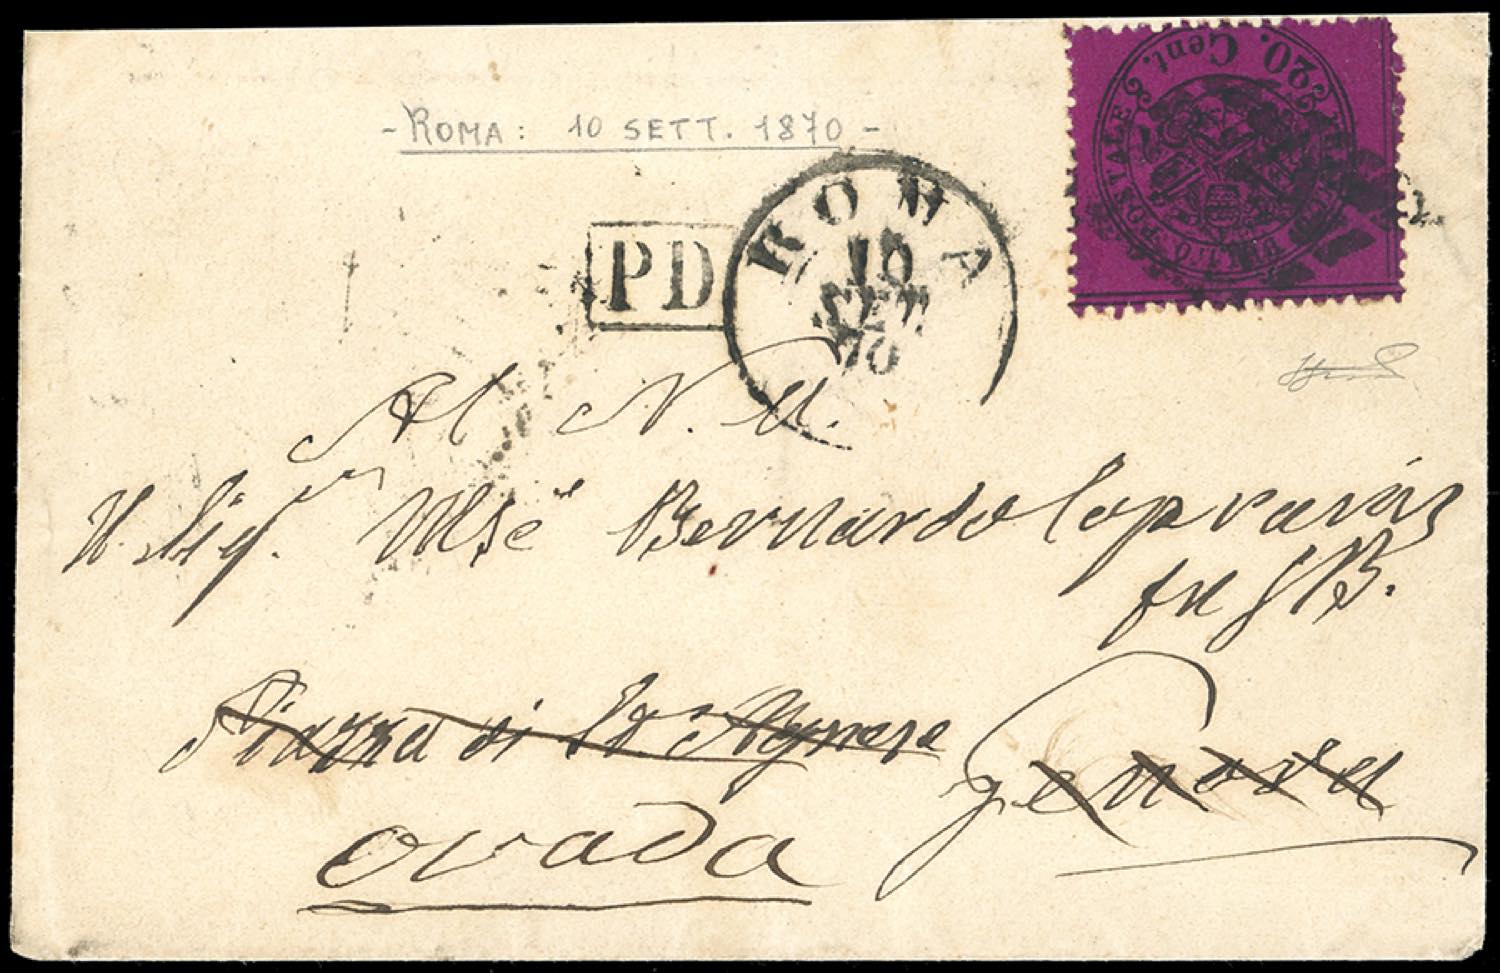 - ROMA: 10 SETT. 1870 -
20. Cent.
BOLLO POSTALE
PD
ROMA
10
SET
70
Al N. U.
Il Sig.r Mse Bernardo
fu GB.
Piazza di Sta Agnese Genova
Ovada